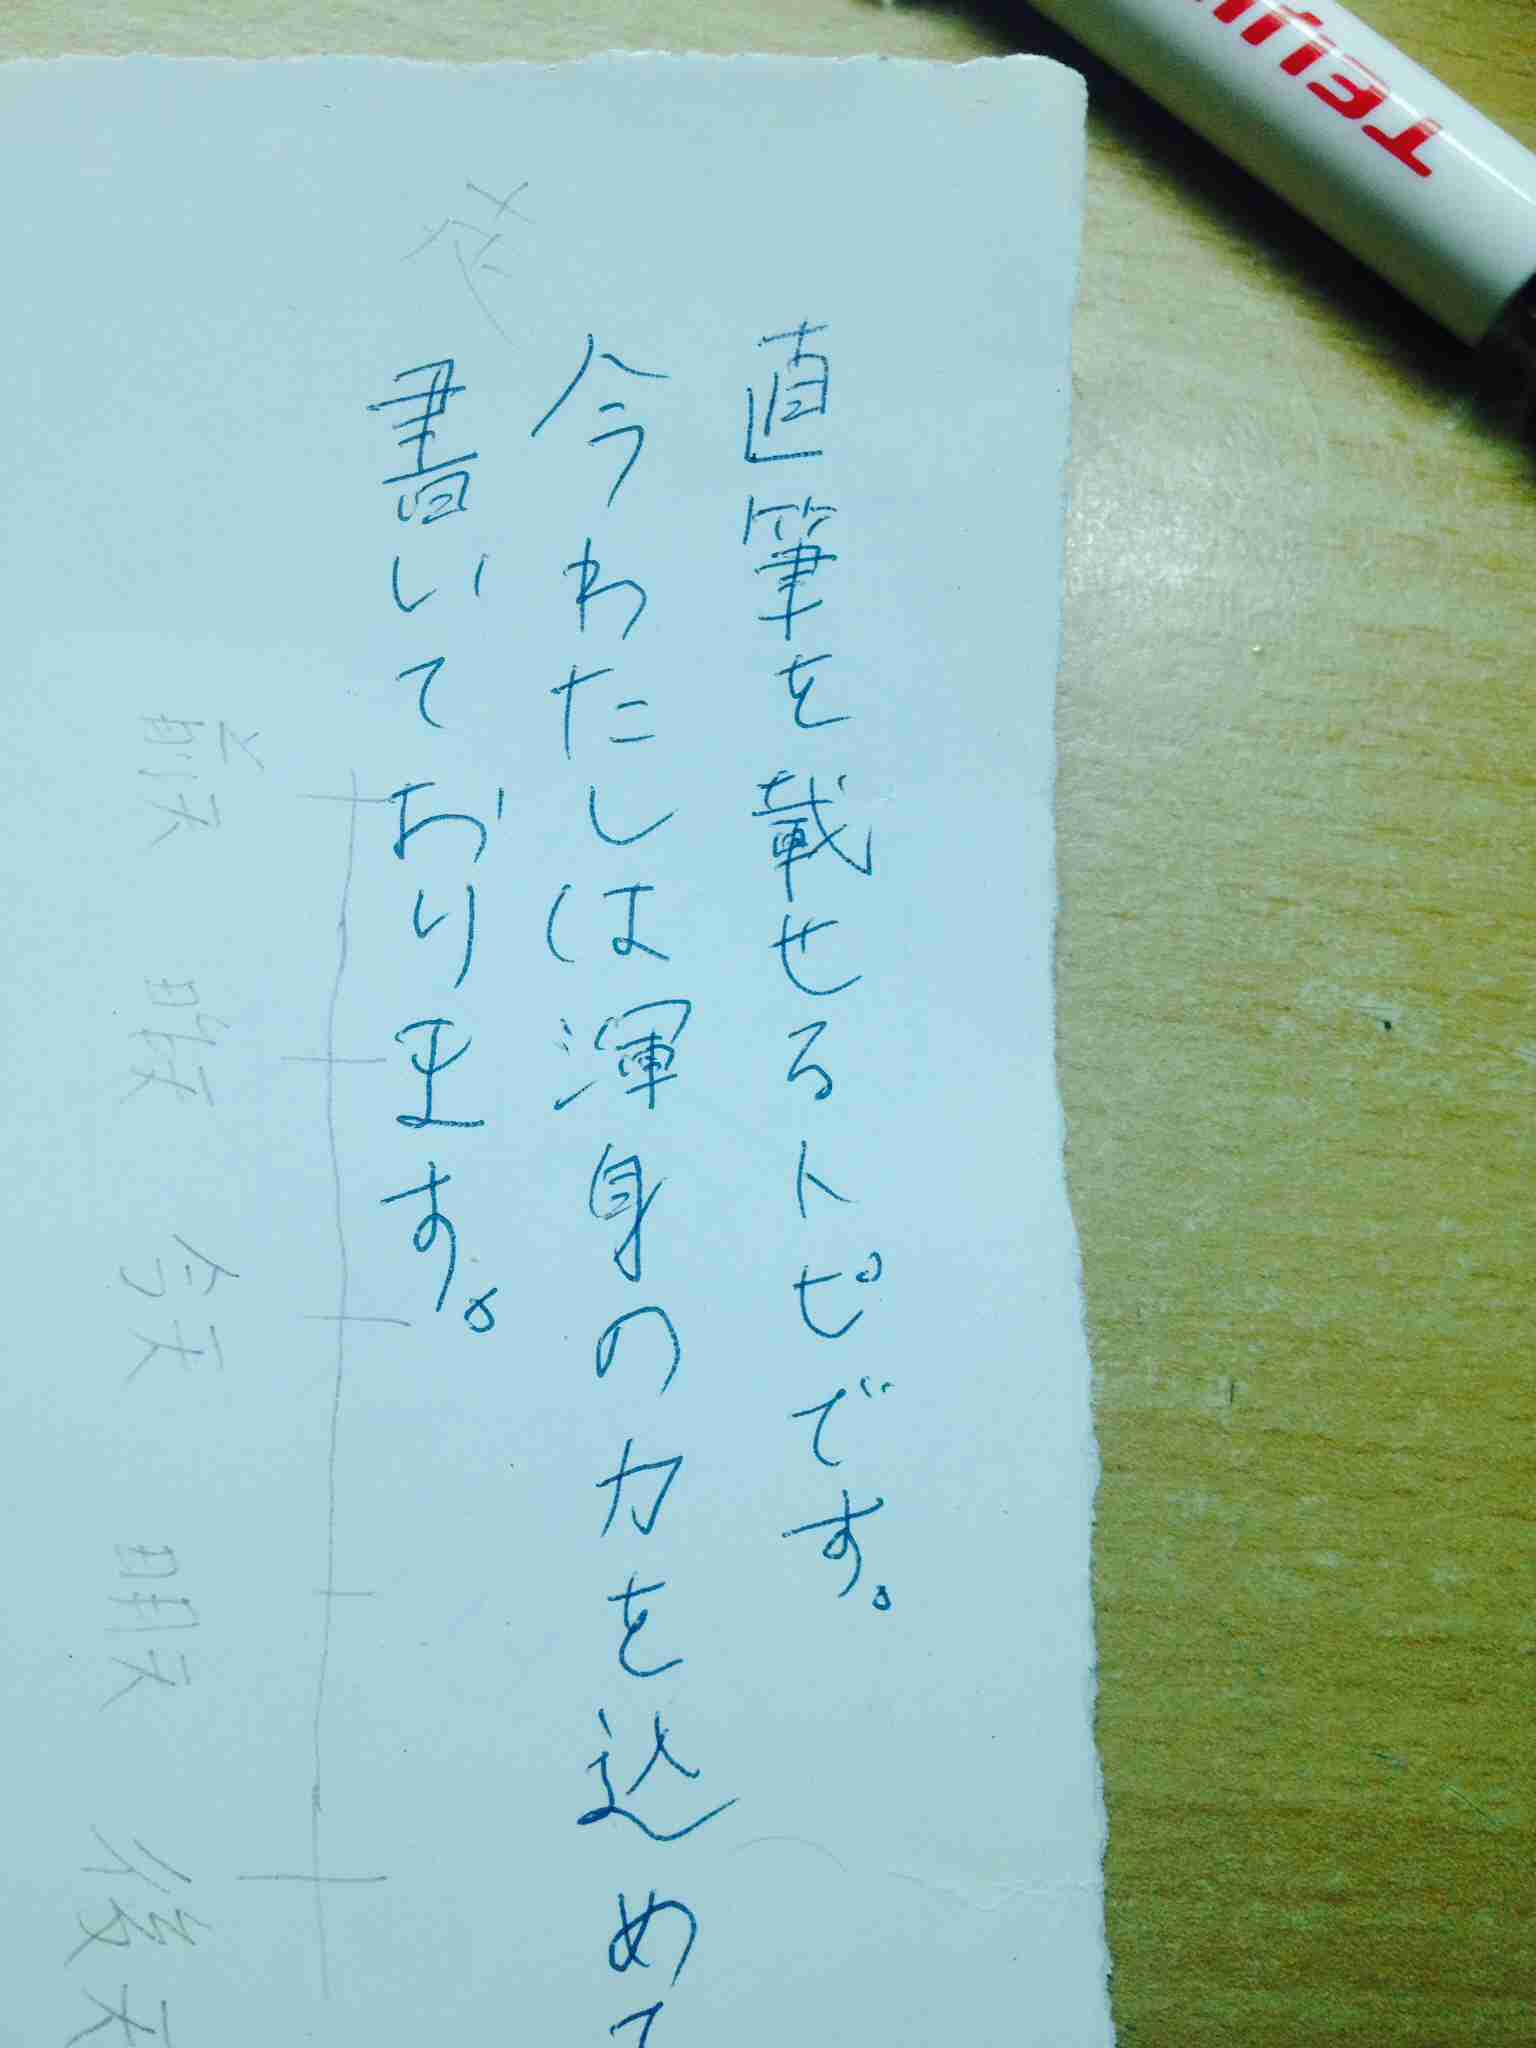 直筆を載せるトピです。
今わたしは渾身の力を込めて
書いております。
前天
昨天
今天
明天
後天